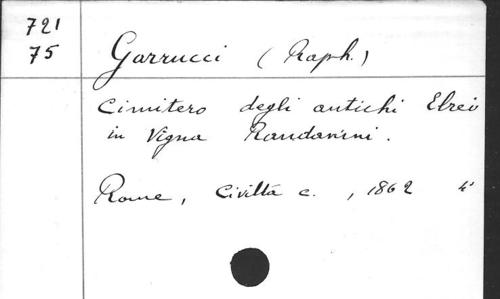 721
75
Garrucci (Raph.)
Cimitero degli antichi Ebrei
in Vigna Randanini.
Rome, Civiltà c., 1862 4°